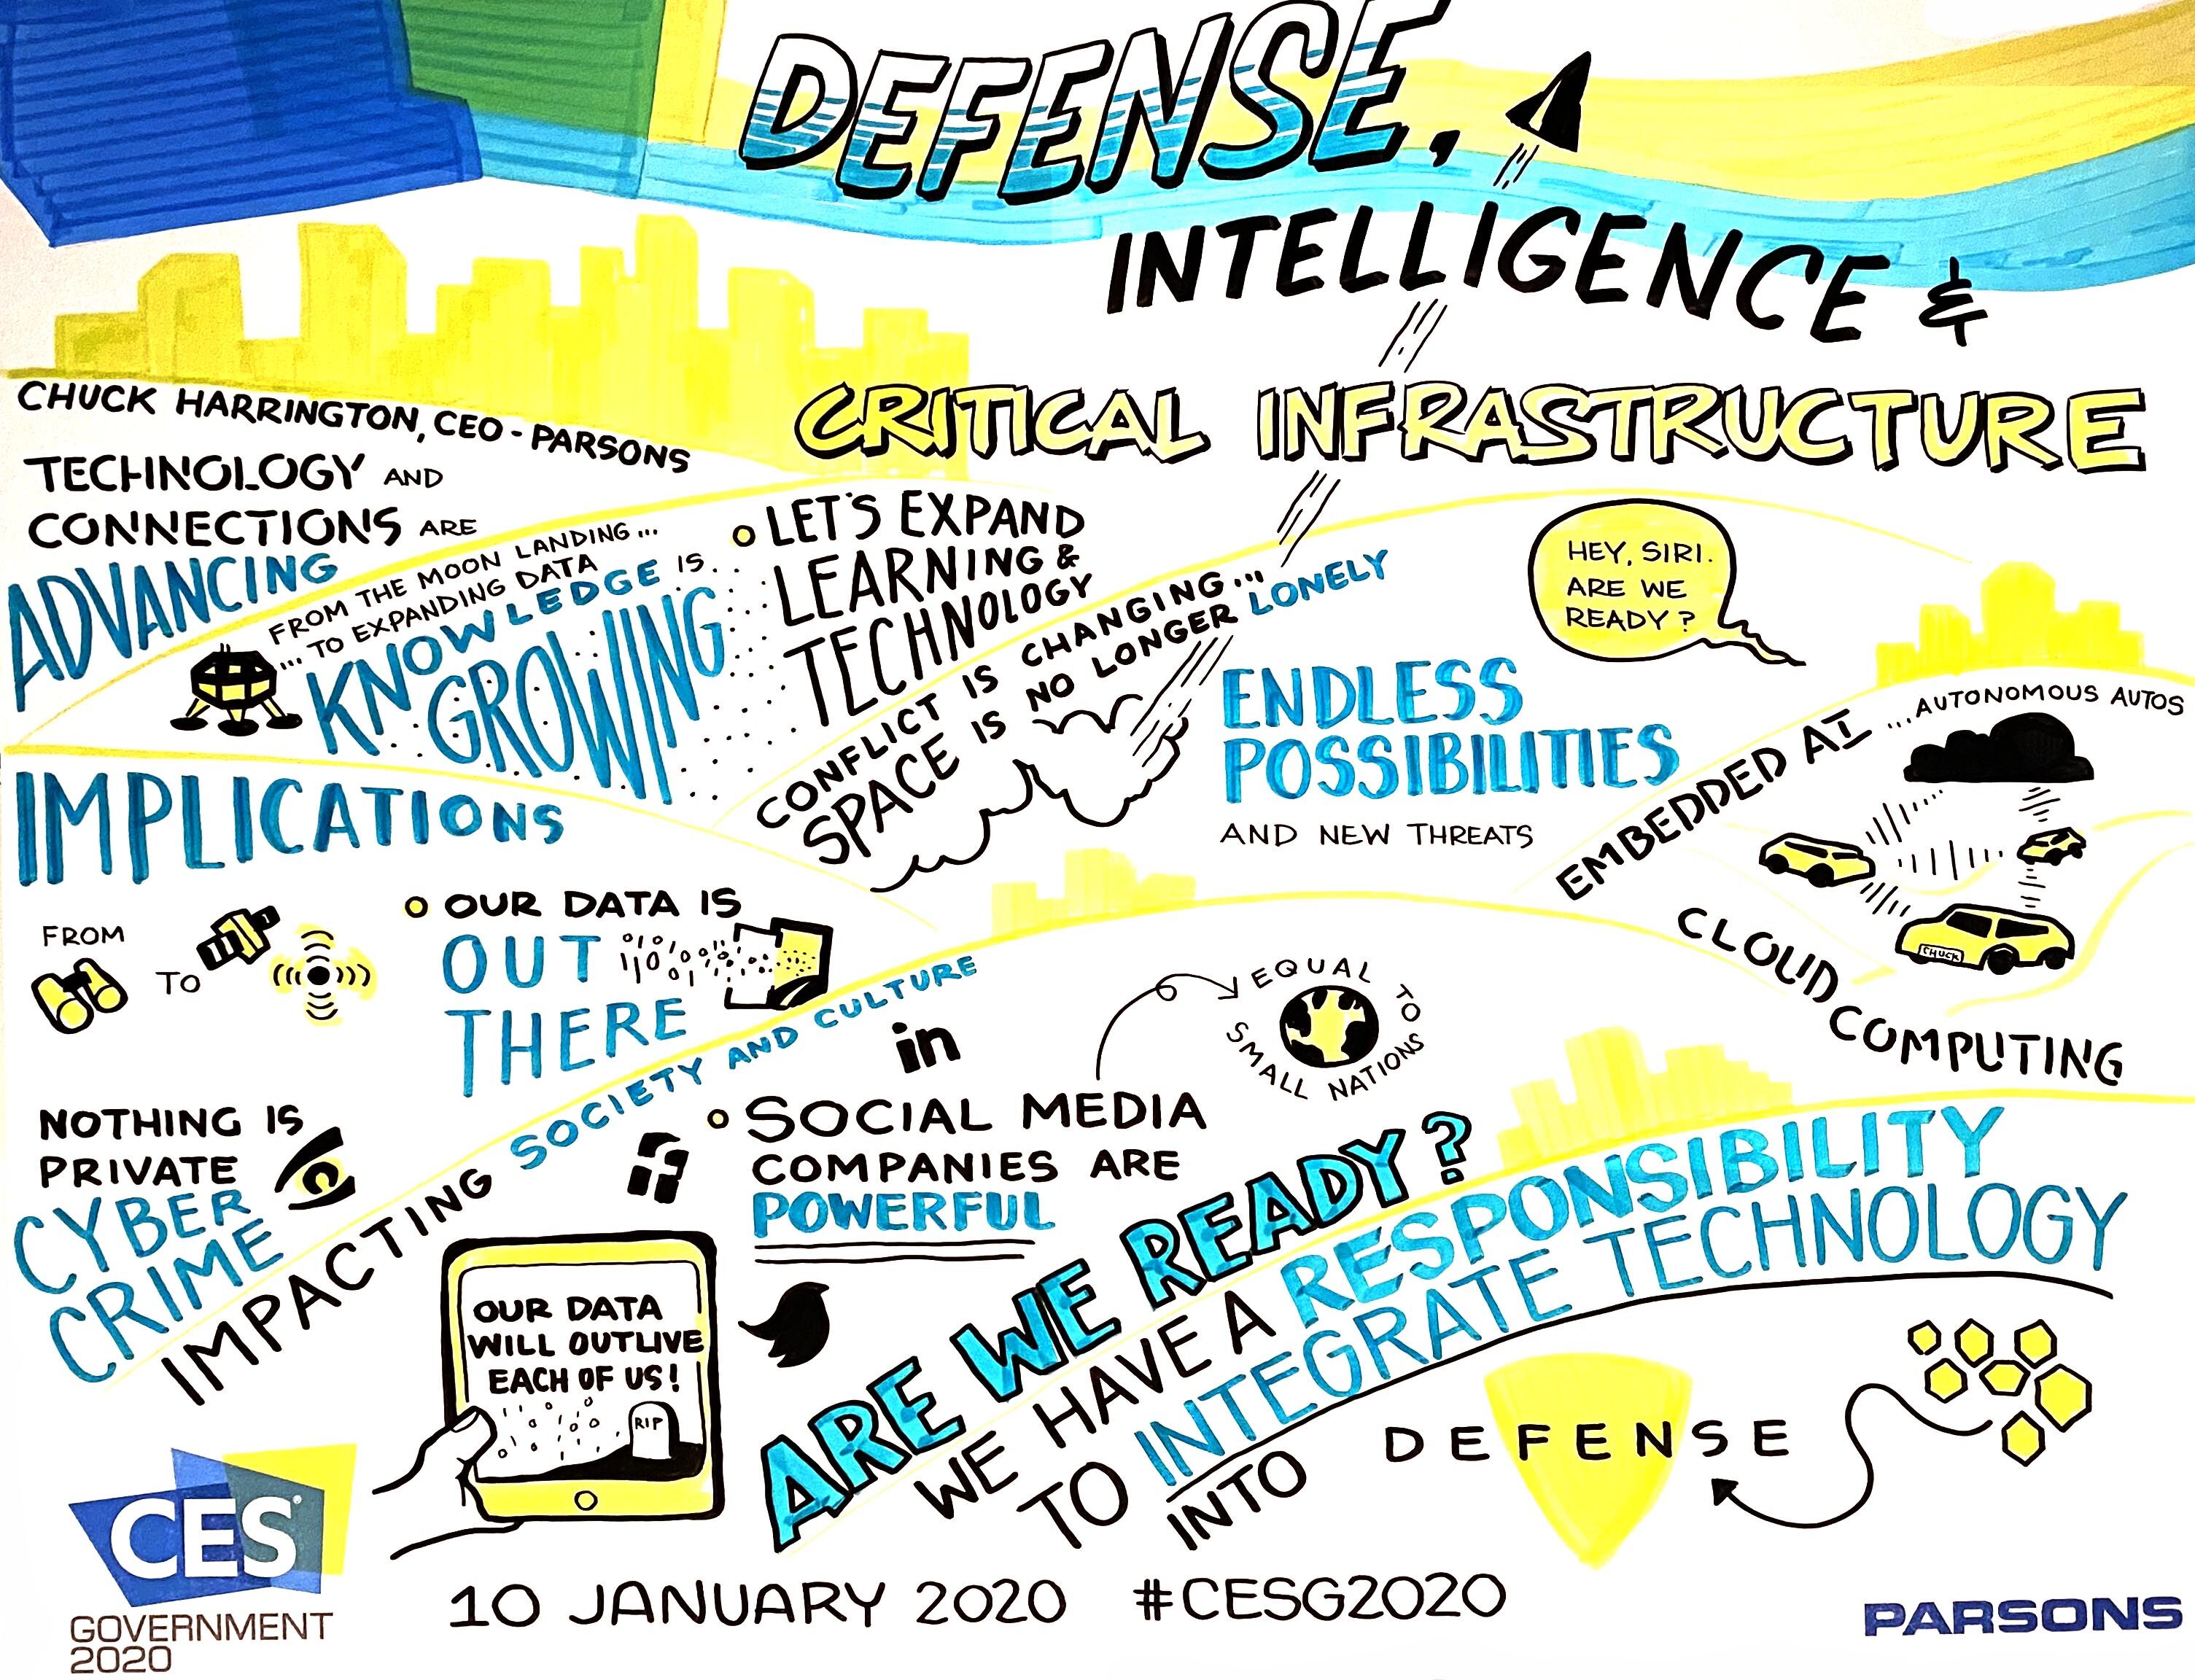 DEFENSE,
INTELLIGENCE &
CRITICAL INFRASTRUCTURE
CHUCK HARRINGTON, CEO - PARSONS
TECHNOLOGY AND
CONNECTIONS ARE
ADVANCING
FROM THE MOON LANDING...
... TO EXPANDING DATA
KNOWLEDGE IS...
GROWING
LET'S EXPAND
LEARNING &
TECHNOLOGY
CONFLICT IS CHANGING...
SPACE IS NO LONGER LONELY
ENDLESS
POSSIBILITIES
AND NEW THREATS
HEY, SIRI.
ARE WE
READY?
EMBEDDED AI ...AUTONOMOUS AUTOS
CHUCK
CLOUD
COMPUTING
IMPLICATIONS
FROM
TO
OUR DATA IS
OUT
THERE
NOTHING IS
PRIVATE
CYBER
CRIME
IMPACTING SOCIETY AND CULTURE
in
f
SOCIAL MEDIA
COMPANIES ARE
POWERFUL
EQUAL TO
SMALL NATIONS
OUR DATA
WILL OUTLIVE
EACH OF US!
RIP
ARE WE READY?
WE HAVE A RESPONSIBILITY
TO INTEGRATE TECHNOLOGY
INTO
DEFENSE
CES®
GOVERNMENT
2020
10 JANUARY 2020 #CESG2020
PARSONS